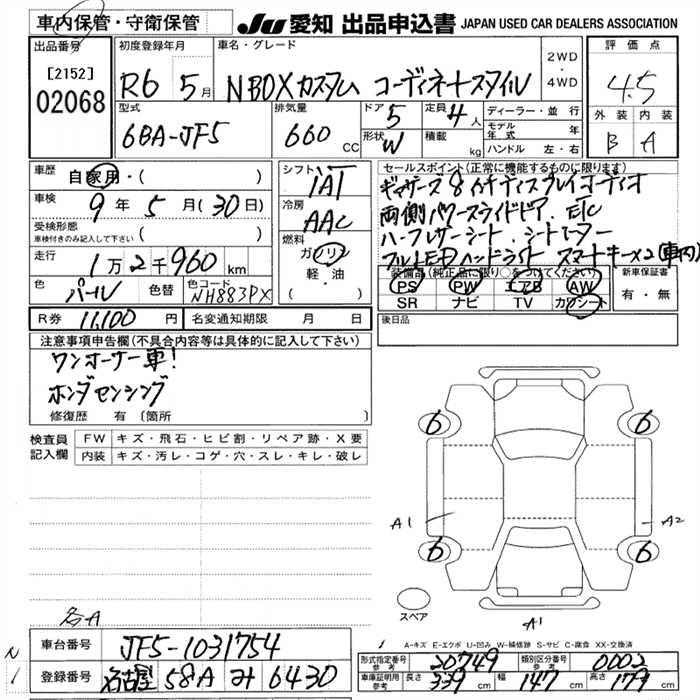 車内保管・守衛保管
JU 愛知 出品申込書 JAPAN USED CAR DEALERS ASSOCIATION
出品番号
[2152]
02068
初度登録年月
R6 5月
車名・グレード
N BOX カスタム コーディネートスタイル
2WD
・
4WD
評価点
4.5
外装 内装
B A
型式
6BA-JF5
排気量
660 CC
ドア 5
形状 W
定員 4人
積載 kg
ディーラー・並行
モデル年式 年
ハンドル 左・右
車歴 自家用・( )
車検 9年 5月(30日)
受検形態
車検付きのみ記入して下さい ( )
走行 1万2千960 km
色 パール 色替 色コード NH883PX
シフト IAT
冷房 AAC
燃料
ガソリン
軽・油
・( )
セールスポイント(正常に機能するものに限ります)
ギャザーズ8インチディスプレイオーディオ
両側パワースライドドア、ETC
ハーフレザーシート、シートヒーター
フルLEDヘッドライト スマートキー×2(車内)
装備品(純正品に限り○をつけてください)
PS PW エアB AW
SR ナビ TV カワシート
新車保証書
有・無
R券 11,100円 名変通知期限 月 日
後日品
注意事項申告欄(不具合内容等は具体的に記入して下さい)
ワンオーナー車!
ホンダセンシング
修復歴 有 〔箇所 〕
検査員
記入欄
FW キズ・飛石・ヒビ割・リペア跡・X要
内装 キズ・汚レ・コゲ・穴・スレ・キレ・破レ
6 6
A1 A2
6 6
スペア
A1
各A
A-キズ E-エクボ U-凹み W-補修跡 S-サビ C-腐食 XX-交換済
N
1
車台番号 JF5-1031754
登録番号 名古屋 58A み 6430
形式指定番号 参考 20749 類別区分番号 参考 0002
車庫証明用 参考 長さ 339 cm 幅 147 cm 高さ 179 cm